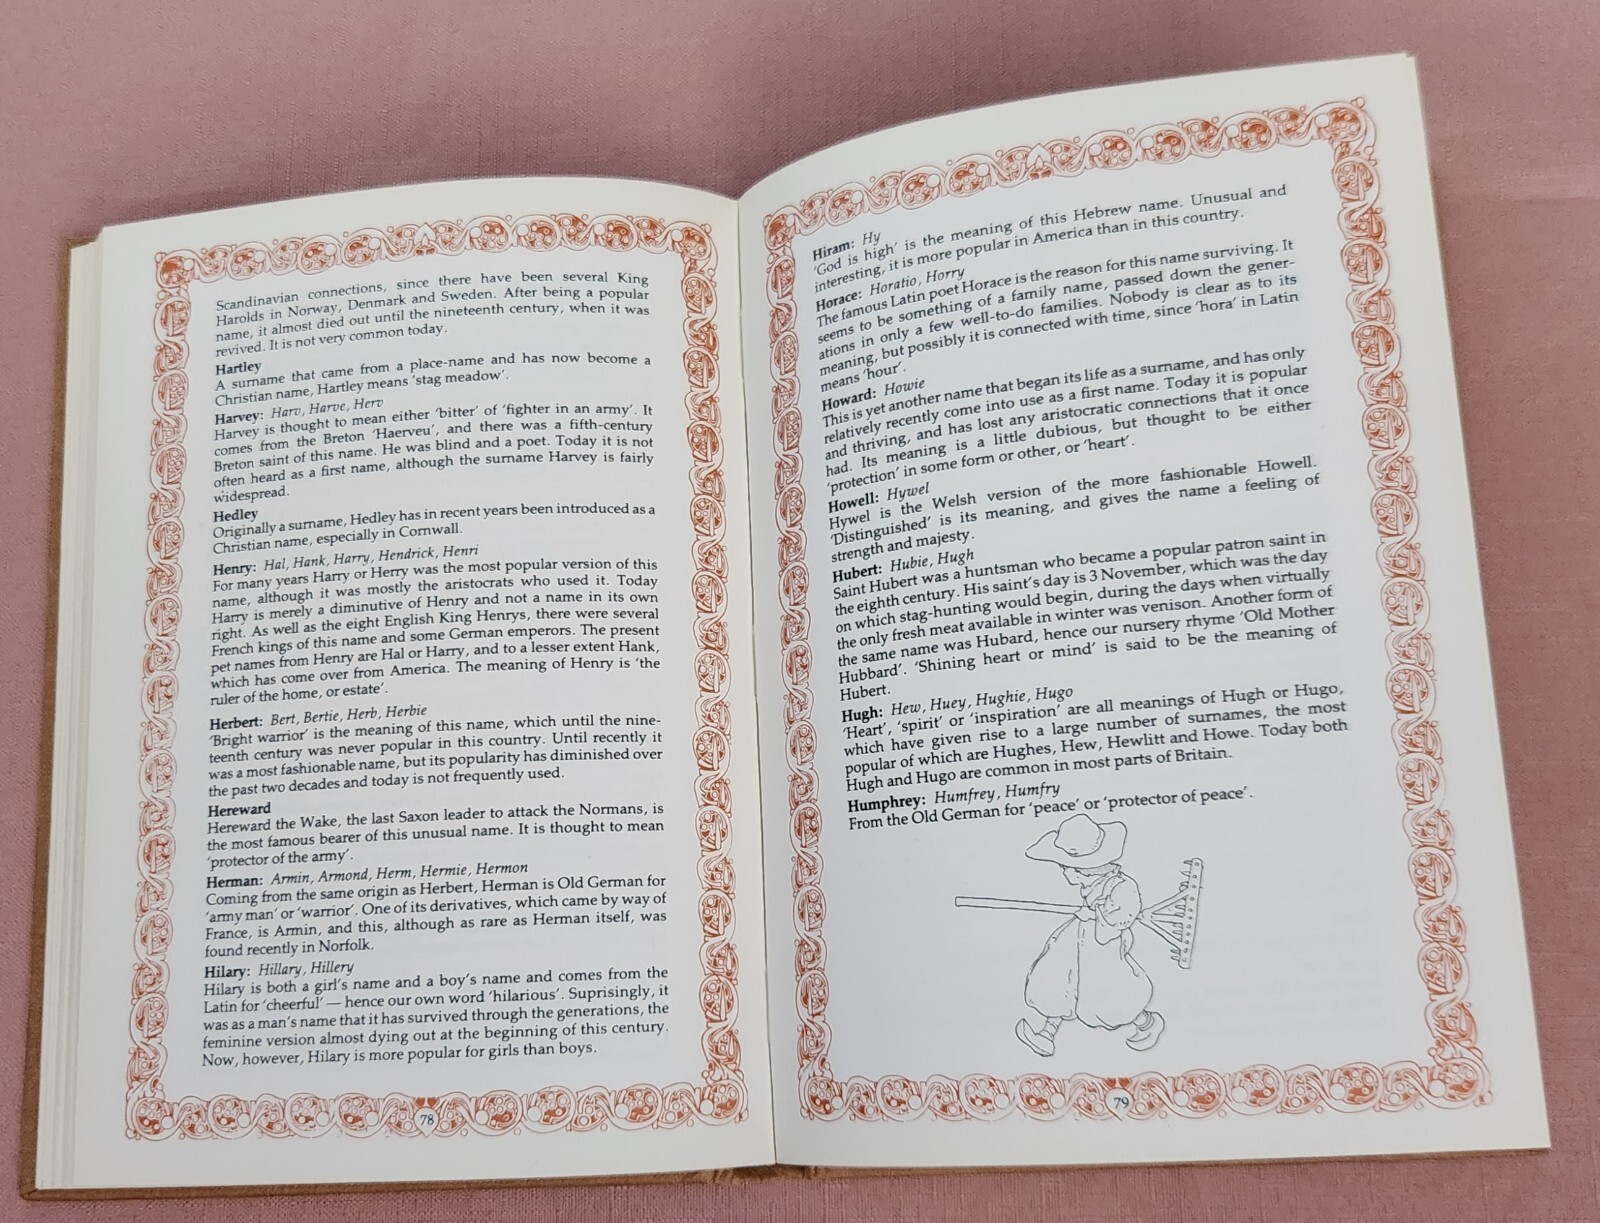 Scandinavian connections, since there have been several King
Harolds in Norway, Denmark and Sweden. After being a popular
name, it almost died out until the nineteenth century, when it was
revived. It is not very common today.
Hartley
A surname that came from a place-name and has now become a
Christian name, Hartley means ‘stag meadow’.
Harvey: Harv, Harve, Herv
Harvey is thought to mean either ‘bitter’ of ‘fighter in an army’. It
comes from the Breton ‘Haerveu’, and there was a fifth-century
Breton saint of this name. He was blind and a poet. Today it is not
often heard as a first name, although the surname Harvey is fairly
widespread.
Hedley
Originally a surname, Hedley has in recent years been introduced as a
Christian name, especially in Cornwall.
Henry: Hal, Hank, Harry, Hendrick, Henri
For many years Harry or Herry was the most popular version of this
name, although it was mostly the aristocrats who used it. Today
Harry is merely a diminutive of Henry and not a name in its own
right. As well as the eight English King Henrys, there were several
French kings of this name and some German emperors. The present
pet names from Henry are Hal or Harry, and to a lesser extent Hank,
which has come over from America. The meaning of Henry is ‘the
ruler of the home, or estate’.
Herbert: Bert, Bertie, Herb, Herbie
‘Bright warrior’ is the meaning of this name, which until the nine-
teenth century was never popular in this country. Until recently it
was a most fashionable name, but its popularity has diminished over
the past two decades and today is not frequently used.
Hereward
Hereward the Wake, the last Saxon leader to attack the Normans, is
the most famous bearer of this unusual name. It is thought to mean
‘protector of the army’.
Herman: Armin, Armond, Herm, Hermie, Hermon
Coming from the same origin as Herbert, Herman is Old German for
‘army man’ or ‘warrior’. One of its derivatives, which came by way of
France, is Armin, and this, although as rare as Herman itself, was
found recently in Norfolk.
Hilary: Hillary, Hillery
Hilary is both a girl’s name and a boy’s name and comes from the
Latin for ‘cheerful’ — hence our own word ‘hilarious’. Suprisingly, it
was as a man’s name that it has survived through the generations, the
feminine version almost dying out at the beginning of this century.
Now, however, Hilary is more popular for girls than boys.
78
Hiram: Hy
‘God is high’ is the meaning of this Hebrew name. Unusual and
interesting, it is more popular in America than in this country.
Horace: Horatio, Horry
The famous Latin poet Horace is the reason for this name surviving. It
seems to be something of a family name, passed down the gener-
ations in only a few well-to-do families. Nobody is clear as to its
meaning, but possibly it is connected with time, since ‘hora’ in Latin
means ‘hour’.
Howard: Howie
This is yet another name that began its life as a surname, and has only
relatively recently come into use as a first name. Today it is popular
and thriving, and has lost any aristocratic connections that it once
had. Its meaning is a little dubious, but thought to be either
‘protection’ in some form or other, or ‘heart’.
Howell: Hywel
Hywel is the Welsh version of the more fashionable Howell.
‘Distinguished’ is its meaning, and gives the name a feeling of
strength and majesty.
Hubert: Hubie, Hugh
Saint Hubert was a huntsman who became a popular patron saint in
the eighth century. His saint’s day is 3 November, which was the day
on which stag-hunting would begin, during the days when virtually
the only fresh meat available in winter was venison. Another form of
the same name was Hubard, hence our nursery rhyme ‘Old Mother
Hubbard’. ‘Shining heart or mind’ is said to be the meaning of
Hubert.
Hugh: Hew, Huey, Hughie, Hugo
‘Heart’, ‘spirit’ or ‘inspiration’ are all meanings of Hugh or Hugo,
which have given rise to a large number of surnames, the most
popular of which are Hughes, Hew, Hewlitt and Howe. Today both
Hugh and Hugo are common in most parts of Britain.
Humphrey: Humfrey, Humfry
From the Old German for ‘peace’ or ‘protector of peace’.
79